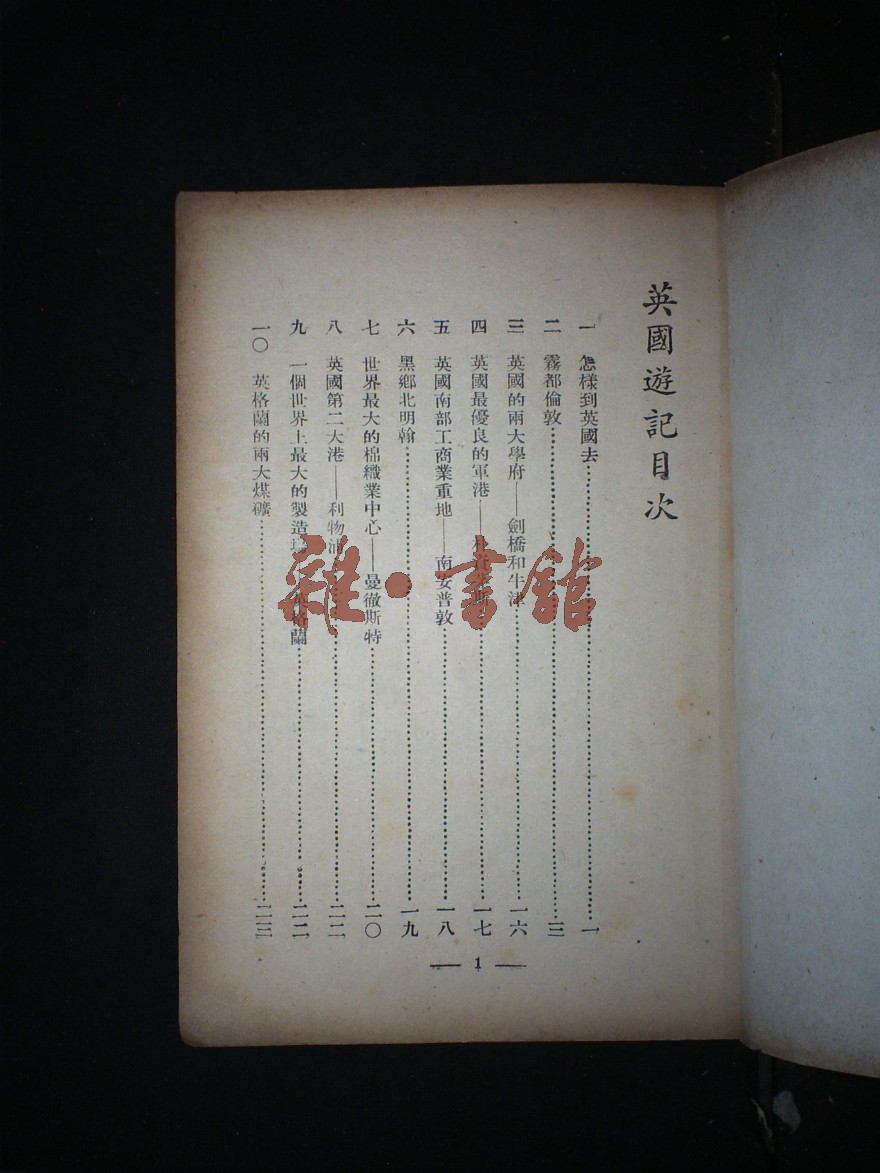 英國遊記目次
一 怎樣到英國去……一
二 霧都倫敦……三
三 英國的兩大學府——劍橋和牛津……一六
四 英國最優良的軍港——斯……一七
五 英國南部工商業重地——南安普敦……一八
六 黑鄉北明翰……一九
七 世界最大的棉織業中心——曼徹斯特……二〇
八 英國第二大港——利物浦……二二
九 一個世界上最大的製造場——英格蘭……二二
一〇 英格蘭的兩大煤礦……二三
— 1 —
雜·書館